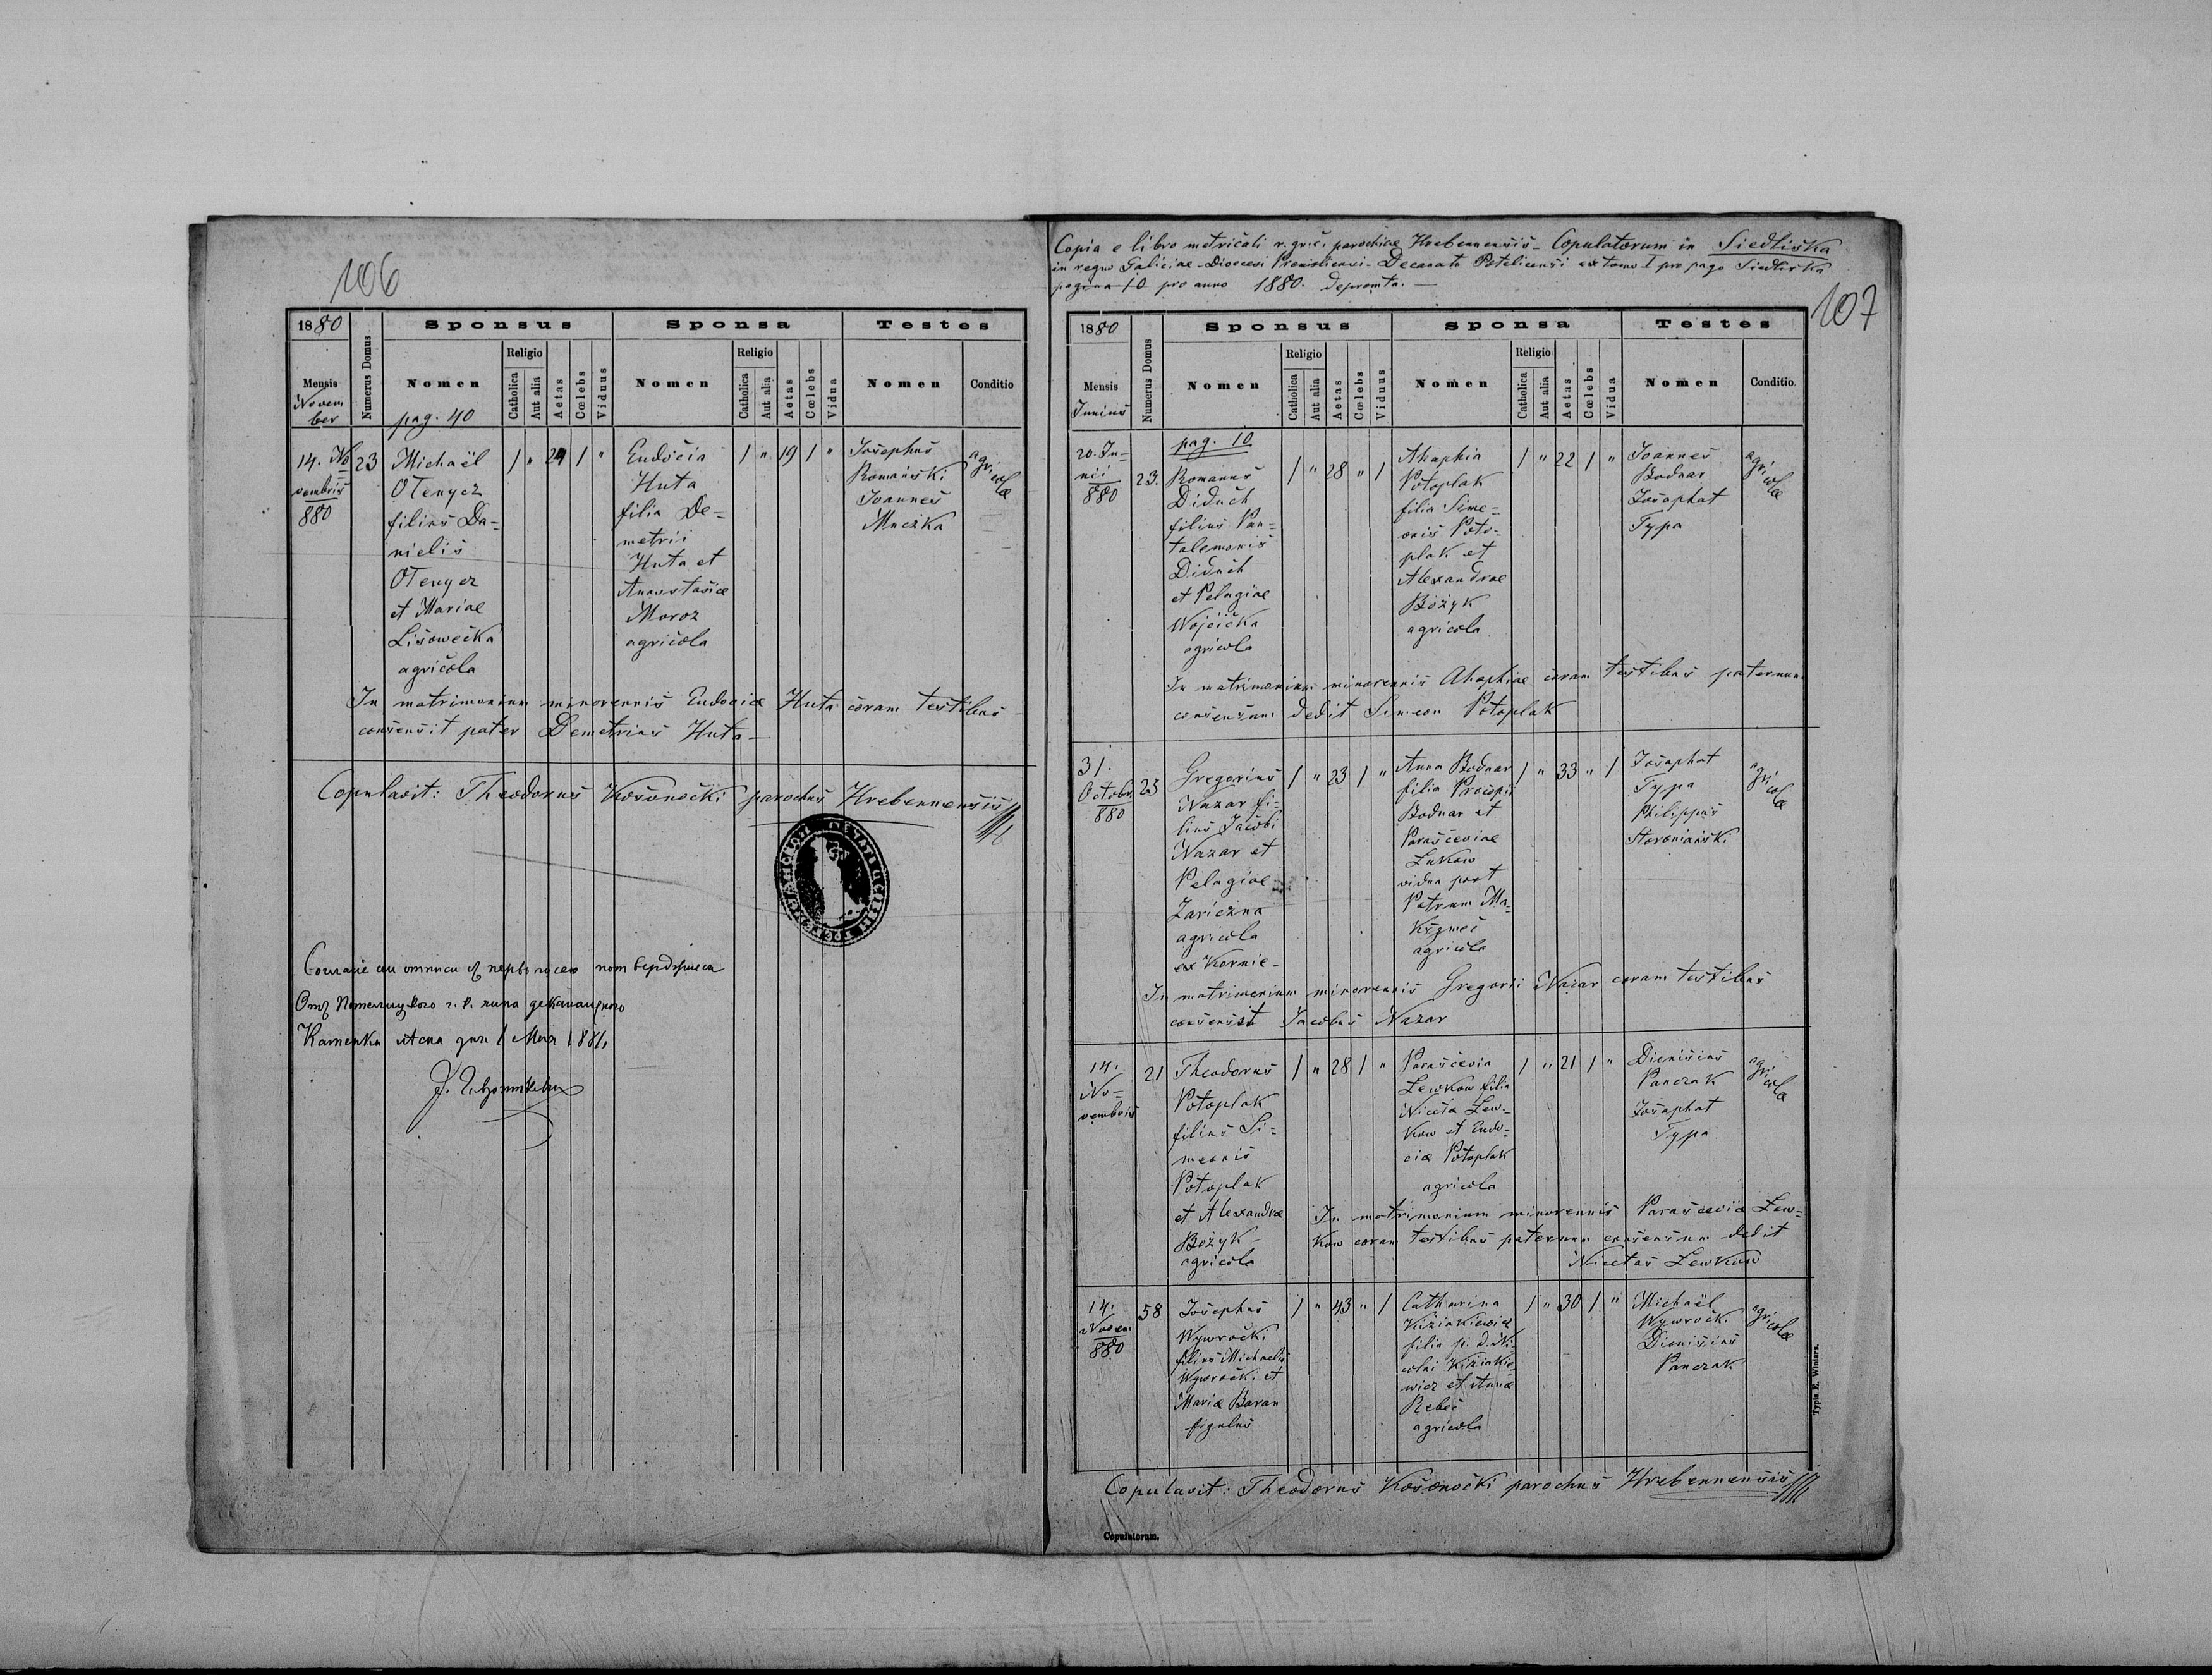 106
1880
Sponsus
Sponsa
Testes
Mensis
Novem
ber
Numerus Domus
Nomen
pag. 40
Religio
Catholica
Aut alia
Aetas
Cœlebs
Viduus
Nomen
Religio
Catholica
Aut alia
Aetas
Cœlebs
Vidua
Nomen
Conditio
14. No
vembris
880
23
Michaël
OTenycz
filius Da-
nielis
OTenycz
et Mariae
Lisowecka
agricola
1 " 24 1 "
Eudocia
Huta
filia De-
metrii
Huta et
Anastasiae
Moroz
agricola
1 " 19 1 "
Josephus
Romański
Joannes
Muczka
agri
colæ
In matrimonium minorennis Eudociæ Huta coram testibus
consensit pater Demetrius Huta
Copulavit: Theodorus Kosonocki parochus Hrebennensis
Каменка
1881
Copia e libro metricali r. gr. c. parochiae Hrebennensis Copulatorum in Siedliska
in regno Galiciae Dioecesi Premisliensi Decanatu Potelicensi ex tomo I pro pago Siedliska
pagina 10 pro anno 1880. depromta.
107
1880
Sponsus
Sponsa
Testes
Mensis
Junius
Numerus Domus
Nomen
Religio
Catholica
Aut alia
Aetas
Cœlebs
Viduus
Nomen
Religio
Catholica
Aut alia
Aetas
Cœlebs
Vidua
Nomen
Conditio.
20. Ju-
nii
880
23.
pag. 10
Romanus
Diduch
filius Pan-
talemonis
Diduch
et Pelagiae
Wojcicka
agricola
1 " 28 " 1
Ahaphia
Potoplak
filia Sime-
onis Poto-
plak et
Alexandrae
Bożyk
agricola
1 " 22 1 "
Joannes
Bodnar
Josaphat
Typa
agri
colæ
In matrimonium minorennis Ahaphiae coram testibus paternum
consensum dedit Simeon Potoplak
31.
Octobr.
880
23
Gregorius
Nazar fi-
lius Jacobi
Nazar et
Pelagiae
Zariczna
agricola
ex Kornie-
1 " 23 1 "
Anna Bodnar
filia Procopi
Bodnar et
Parasceviae
Lukow
vidua post
Petrum Ma-
agricola
1 " 33 " 1
Josaphat
Typa
Philippus
agri
colæ
In matrimonium minorennis Gregorii Nazar coram testibus
consensit Jacobus Nazar
14.
No-
vembris
21
Theodorus
Potoplak
filius Si-
meonis
Potoplak
et Alexandrae
Bożyk
agricola
1 " 28 1 "
Parascevia
Lewkow filia
Niceta Lew-
kow et Eudo-
ciæ Potoplak
agricola
1 " 21 1 "
Dionisius
Panczak
Josaphat
Typa
agri
cola
In matrimonium minorennis Parasceviæ Lew-
kow coram testibus paternum consensum dedit
Nicetas Lewkow
14.
Novem
880
58
Josephus
Wywrocki
filius Michaelis
Wywrocki et
Mariæ Baran
figulus
1 " 43 " 1
Catharina
filia p. d. Ni
colai
wicz et Annæ
Rebec
agricola
1 " 30 1 "
Michaël
Wywrocki
Dionisius
Panczak
agri
colæ
Copulavit: Theodorus Kosonocki parochus Hrebennensis
Copulatorum.
Typis E. Winiarz.